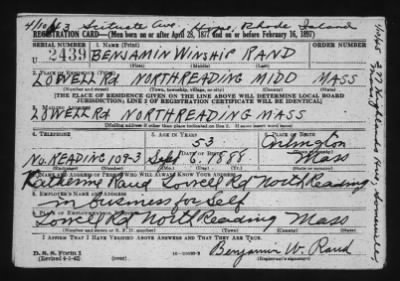 4/10/43 Scituate Ave. Hope, Rhode Island
REGISTRATION CARD—(Men born on or after April 28, 1877 and on or before February 16, 1897)
SERIAL NUMBER 1. Name (Print) ORDER NUMBER
U 2439 BENJAMIN WINSHIP RAND
2. Place of Residence (Print)
LOWELL Rd NORTH READING MIDD MASS
(Number and street) (Town, township, village, or city) (County) (State)
[THE PLACE OF RESIDENCE GIVEN ON THE LINE ABOVE WILL DETERMINE LOCAL BOARD
JURISDICTION; LINE 2 OF REGISTRATION CERTIFICATE WILL BE IDENTICAL]
3. Mailing Address
LOWELL Rd NORTH READING MASS
[Mailing address if other than place indicated on line 2. If same insert word same]
4. Telephone 5. Age in Years 6. Place of Birth
53 Arlington
Date of Birth
No. READING 109-3 Sept 6, 1888 Mass
7. Name and Address of Person Who Will Always Know Your Address
Katherine Rand Lowell Rd North Reading
8. Employer's Name and Address
in business for Self
9. Place of Employment or Business
Lowell Rd North Reading Mass
(Number and street or R. F. D. number) (Town) (County) (State)
I Affirm That I Have Verified Above Answers and That They Are True.
D. S. S. Form 1
(Revised 4-1-42)
Benjamin W. Rand